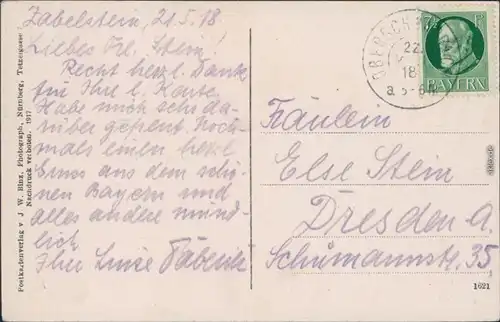 Zabelstein, 21.5.18
Liebes Frl. Stein!
Recht herzl. Dank
für Ihre l. Karte.
Habe mich sehr da-
rüber gefreut. Noch-
mals einen herzl.
Gruss aus dem schö-
nen Bayern und
alles andere münd-
lich.
Ihre Luise
Postkartenverlag v. J. W. Hinz, Photograph, Nürnberg, Tetzelgasse
Nachdruck verboten. 1917
22.
18
BAYERN
Fräulein
Else Stein
Dresden a.
Schumannstr. 35
1621